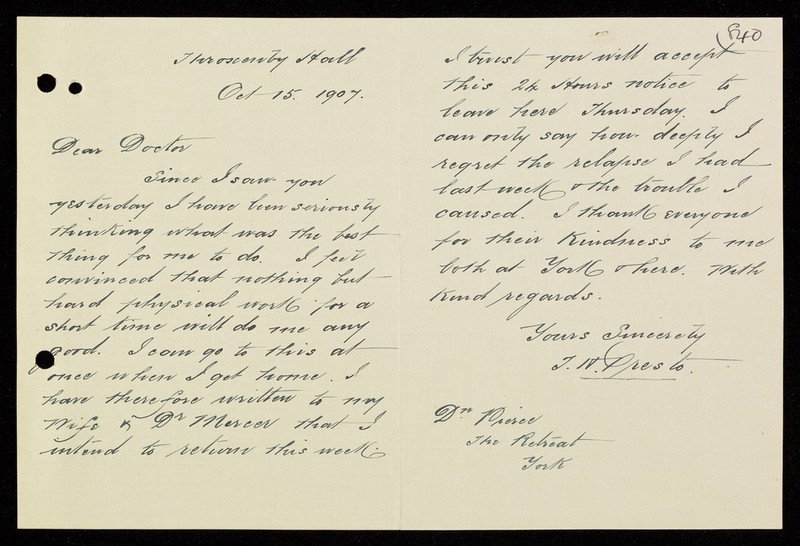 Throxenby Hall
Oct 15. 1907.
Dear Doctor
Since I saw you
yesterday I have been seriously
thinking what was the best
thing for me to do. I feel
convinced that nothing but
hard physical work for a
short time will do me any
good. I can go to this at
once when I get home. I
have therefore written to my
Wife & Dr Mercer that I
intend to return this week.
840
I trust you will accept
this 24 Hours notice to
leave here Thursday. I
can only say how deeply I
regret the relapse I had
last week & the trouble I
caused. I thank everyone
for their kindness to me
both at York & here. With
kind regards.
Yours Sincerely
T. W.
Dr Pierce
The Retreat
York